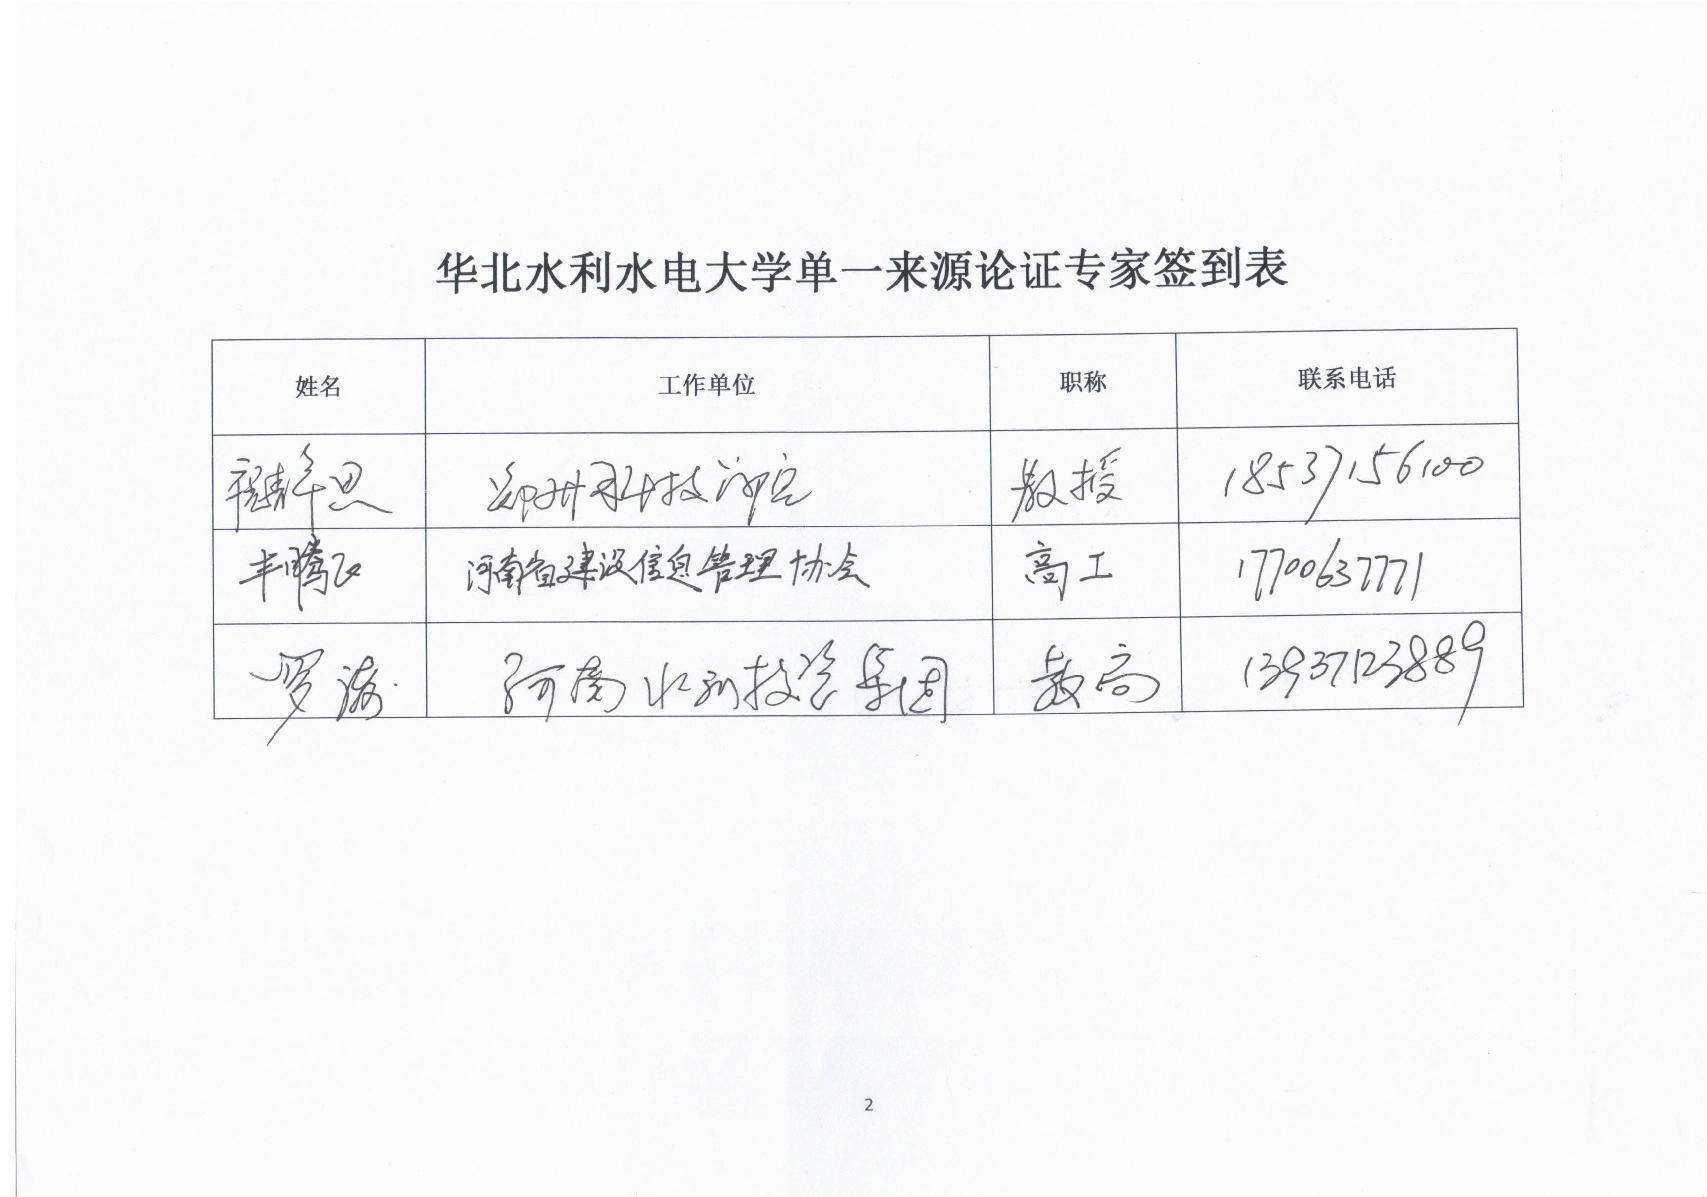 华北水利水电大学单一来源论证专家签到表
姓名 工作单位 职称 联系电话
郑州科技学院 教授 18537156100
丰腾飞 河南省建设信息管理协会 高工 17700637771
罗涛 河南水利投资集团 教高 13937123889
2